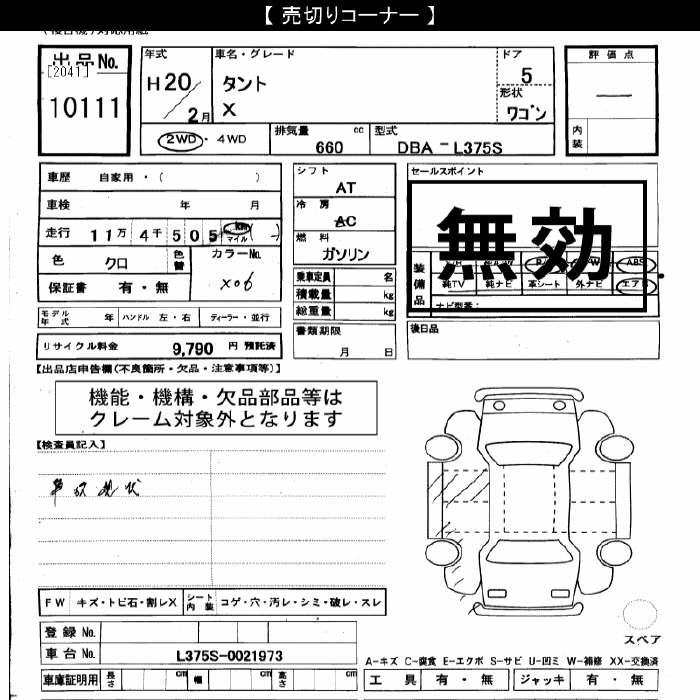 【 売切りコーナー 】
出品No.
[2041]
10111
年式
H20
2月
車名・グレード
タント
X
ドア
5
形状
ワゴン
評価点
―
内装
2WD・4WD
排気量 cc
660
型式
DBA-L375S
車歴 自家用・( )
車検 年 月
走行 11万4千505 km マイル ( )
色 クロ
色替
カラーNo.
X06
保証書 有・無
シフト
AT
冷房
AC
燃料
ガソリン
乗車定員 名
積載量 kg
総重量 kg
書類期限
月 日
セールスポイント
無効
装備品
ABS
純TV 純ナビ 革シート 外ナビ エアB
ナビ型番:
後日品
モデル年式 年 ハンドル 左・右 ディーラー・並行
リサイクル料金 9,790 円 預託済
【出品店申告欄(不良箇所・欠品・注意事項等)】
機能・機構・欠品部品等は
クレーム対象外となります
【検査員記入】
現状
FW キズ・トビ石・割レX
シート内装 コゲ・穴・汚レ・シミ・破レ・スレ
登録 No.
車台 No. L375S-0021973
車庫証明用 長さ cm 幅 cm 高さ cm
スペア
A-キズ C-腐食 E-エクボ S-サビ U-凹ミ W-補修 XX-交換済
工具 有・無 ジャッキ 有・無